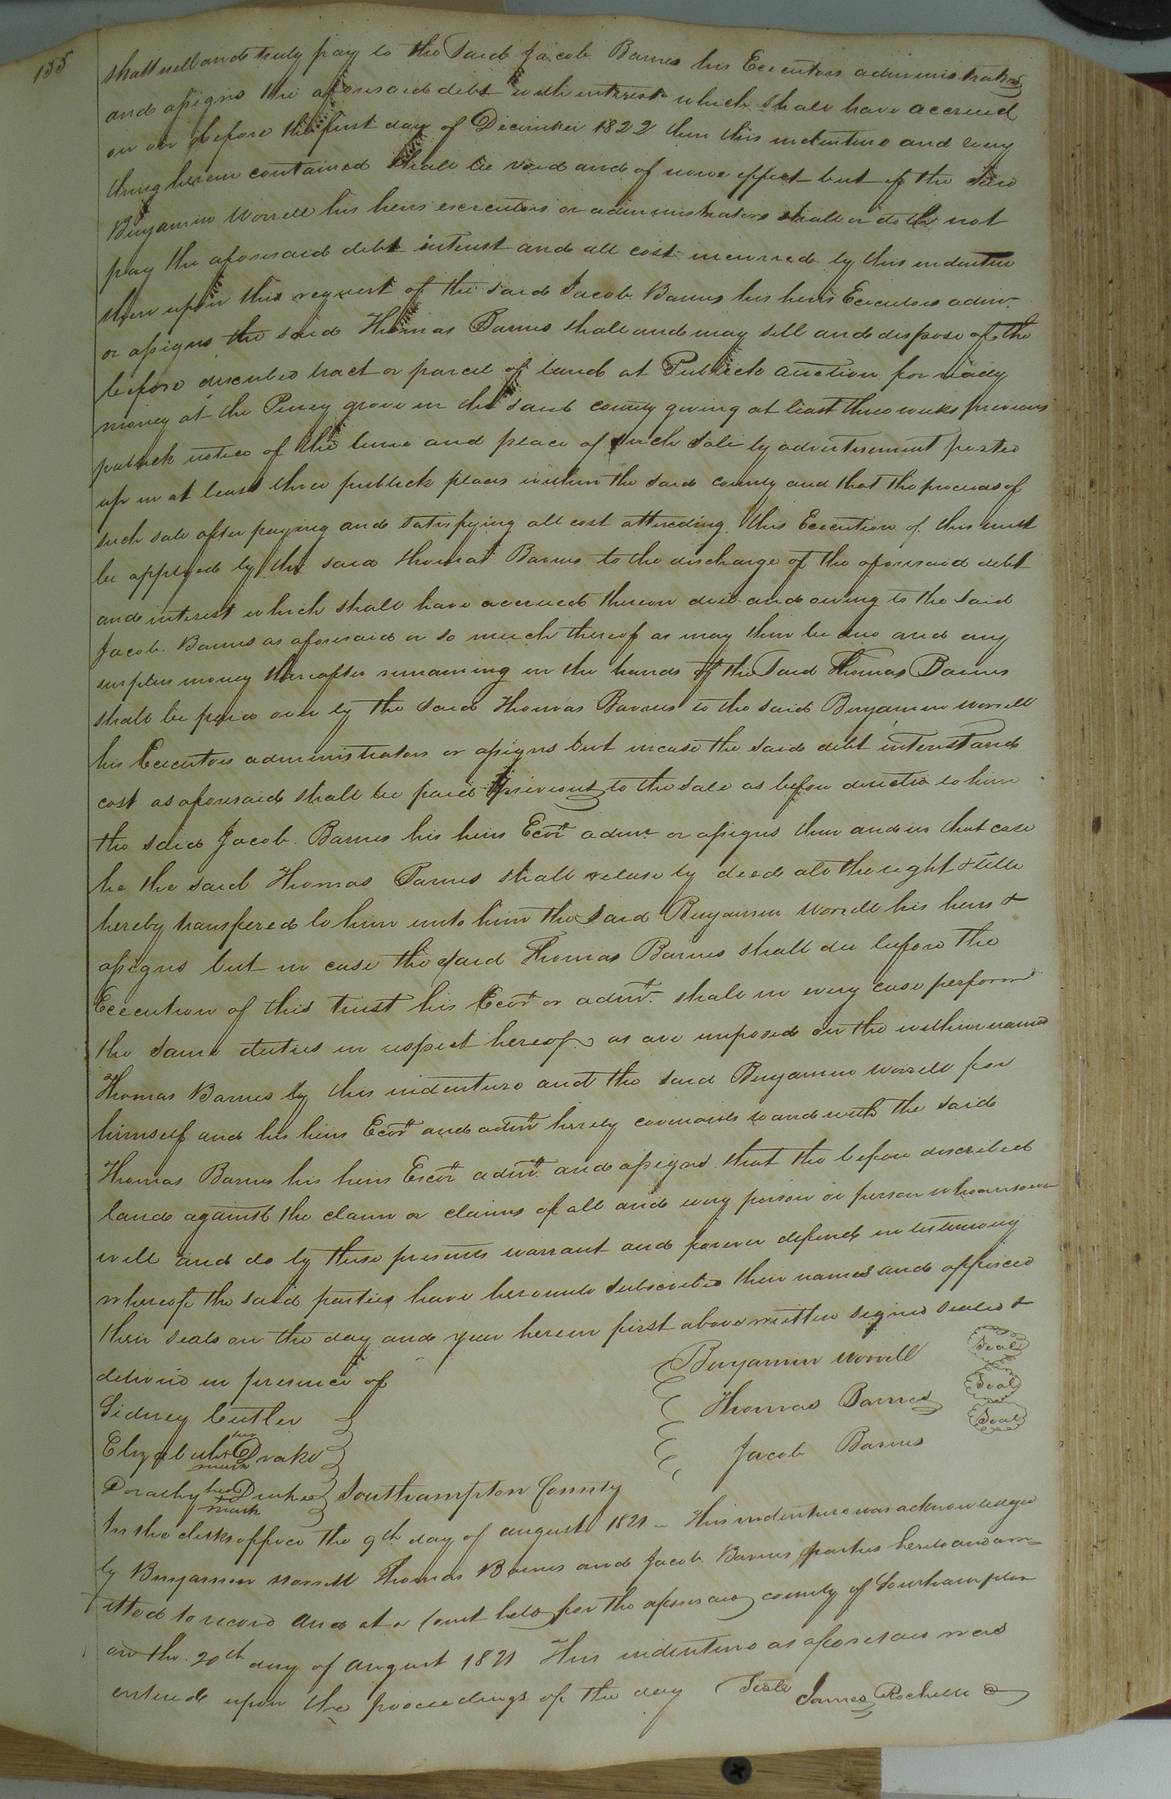 155
shall well and truly pay to the said Jacob Barnes his Executors administrators
and assigns the aforesaid debt with interest which shall have accrued
on or before the first day of December 1822 then this indenture and every
thing herein contained shall be void and of none effect but if the said
Benjamin Worrell his heirs executors or administrators shall or doth not
pay the aforesaid debt interest and all cost incurred by this indenture
then upon the request of the said Jacob Barnes his heirs Executors admr
or assigns the said Thomas Barnes shall and may sell and dispose of the
before described tract or parcel of land at Publick auction for ready
money at the Piney grove in the said county giving at least three weeks previous
publick notice of the time and place of such sale by advertisement posted
up in at least three publick places within the said county and that the proceeds of
such sale after paying and satisfying all cost attending this Execution of this trust
be applyed by the said Thomas Barnes to the discharge of the aforesaid debt
and interest which shall have accrued thereon due and owing to the said
Jacob Barnes as aforesaid or so much thereof as may then be due and any
surplus money thereafter remaining in the hands of the said Thomas Barnes
shall be paid over by the said Thomas Barnes to the said Benjamin Worrell
his Executors administrators or assigns but incase the said debt interest and
cost as aforesaid shall be paid previous to the sale as before directed to him
the said Jacob Barnes his heirs Ecors admr or assigns then and in that case
he the said Thomas Barnes shall release by deed all the right & title
hereby transfered to him unto him the said Benjamin Worrell his heirs &
assigns but in case the said Thomas Barnes shall die before the
Execution of this trust his Ecors or admrs shall in every case perform
the same duties in respect hereof as are imposed on the within named
Thomas Barnes by this indenture and the said Benjamin Worrell for
himself and his heirs Ecors and admrs hereby covenants to and with the said
Thomas Barnes his heirs Ecors admrs and assigns that the before described
land against the claim or claims of all and every person or person whomsoever
will and do by these presents warrant and forever defend in testimony
whereof the said parties have hereunto subscribed their names and affixed
their seals on the day and year herein first above written signed sealed &
delivd in presence of
Benjamin Worrell Seal
Sidney Cutler
Thomas Barnes Seal
Elizabeth her mark Drake
Jacob Barnes Seal
Dorathy her mark Drake
Southampton County
In the clerks office the 9th day of august 1821 - This indenture was acknowledged
by Benjamin Worrell Thomas Barnes and Jacob Barnes parties hereto and adm-
itted to record and at a Court held for the aforesaid county of Southampton
on the 20th day of August 1821 This indenture as aforesaid was
entered upon the proceedings of the day Teste James Rochelle